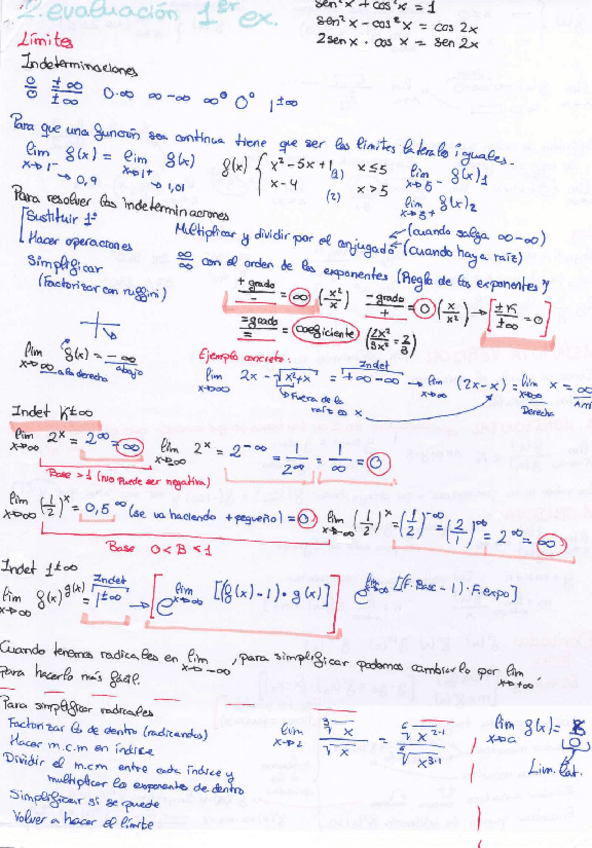 2. evaluación 1er ex.
sen² x + cos² x = 1
sen² x - cos² x = cos 2x
2sen x · cos x = sen 2x
Límites
Indeterminaciones
0/0 ±∞/±∞ 0·∞ ∞-∞ ∞⁰ 0⁰ 1^±∞
Para que una función sea continua tiene que ser los límites laterales iguales.
lim x→1⁻ f(x) = lim x→1⁺ f(x)
→ 0,9 → 1,01
f(x) { x² - 5x + 1 (1) x ≤ 5
x - 4 (2) x > 5
lim x→5⁻ f(x)1
lim x→5⁺ f(x)2
Para resolver las indeterminaciones
Sustituir 1º
Hacer operaciones
Simplificar
(Factorizar con ruffini)
Multiplicar y dividir por el conjugado (cuando salga ∞-∞)
(cuando haya raíz)
∞/∞ con el orden de los exponentes (Regla de los exponentes)
+ grado/- = ∞ (x²/x) - grado/+ = 0 (x/x²) → [±K/±∞ = 0]
= grado/= = coeficiente (2x²/3x² = 2/3)
lim x→∞ f(x) = -∞
a la derecha abajo
Ejemplo concreto:
Indet
lim x→∞ 2x - √x²+x = +∞-∞ → lim x→∞ (2x-x) = lim x→∞ x = ∞
Fuera de la raíz es x
Derecha
Indet K^±∞
lim x→∞ 2^x = 2^∞ = ∞ lim x→-∞ 2^x = 2^-∞ = 1/2^∞ = 1/∞ = 0
Base > 1 (No puede ser negativa)
lim x→∞ (1/2)^x = 0,5^∞ (se va haciendo + pequeño) = 0 lim x→-∞ (1/2)^x = (1/2)^-∞ = (2/1)^∞ = 2^∞ = ∞
Base 0 < B < 1
Indet 1^±∞
Indet
lim x→∞ f(x)^g(x) = 1^±∞ → [e^lim x→∞ [(f(x)-1)·g(x)]] e^lim x→∞ [(F.Base-1)·F.expo]
Cuando tenemos radicales en lim x→-∞, para simplificar podemos cambiarlo por lim x→+∞,
para hacerlo más fácil.
Para simplificar radicales
Factorizar lo de dentro (radicandos)
Hacer m.c.m en índice
Dividir el m.c.m entre cada índice y
multiplicar los exponentes de dentro
Simplificar si se puede
Volver a hacer el límite
lim x→2 ∛x/√x = ⁶√x²·¹/⁶√x³·¹
lim x→a f(x) = K/0
Lim. lat.